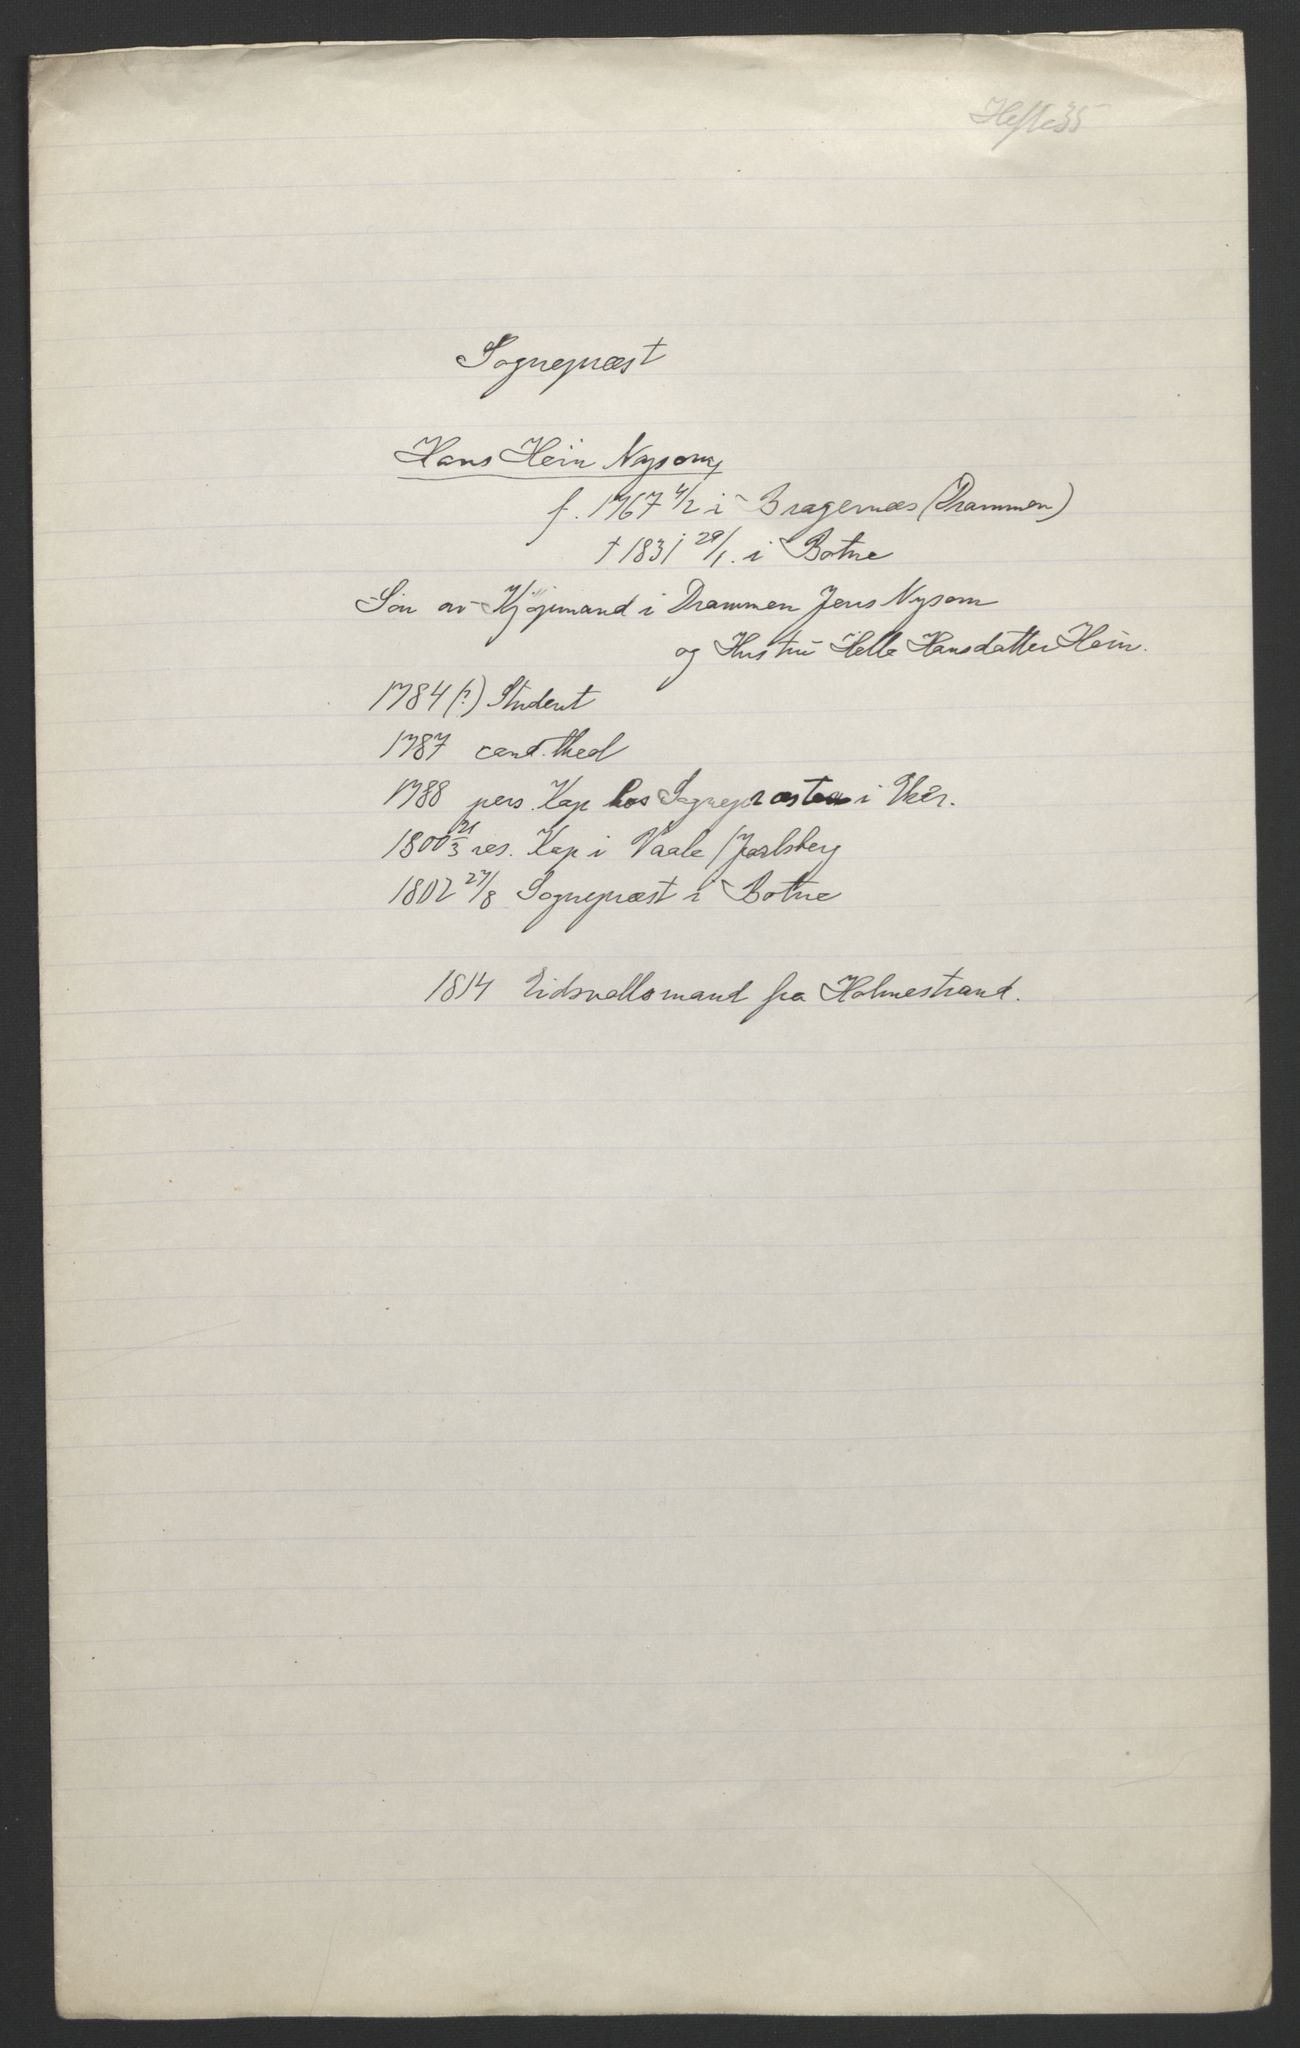 Hefte 35
Sognepræst
Hans Hein Nysom,
f. 1767 4/2 i Bragernæs (Drammen)
† 1831 29/1. i Botne
Sön av Kjöpmand i Drammen Jens Nysom
og Hustru Helle Hansdatter Hein.
1784 (?) Student
1787 cand. theol
1788 pers. Kap hos Sognepræsten i Eker.
1800 21/3 res. Kap i Vaale / Jarlsberg
1802 27/8 Sognepræst i Botne
1814 Eidsvollsmand fra Holmestrand.